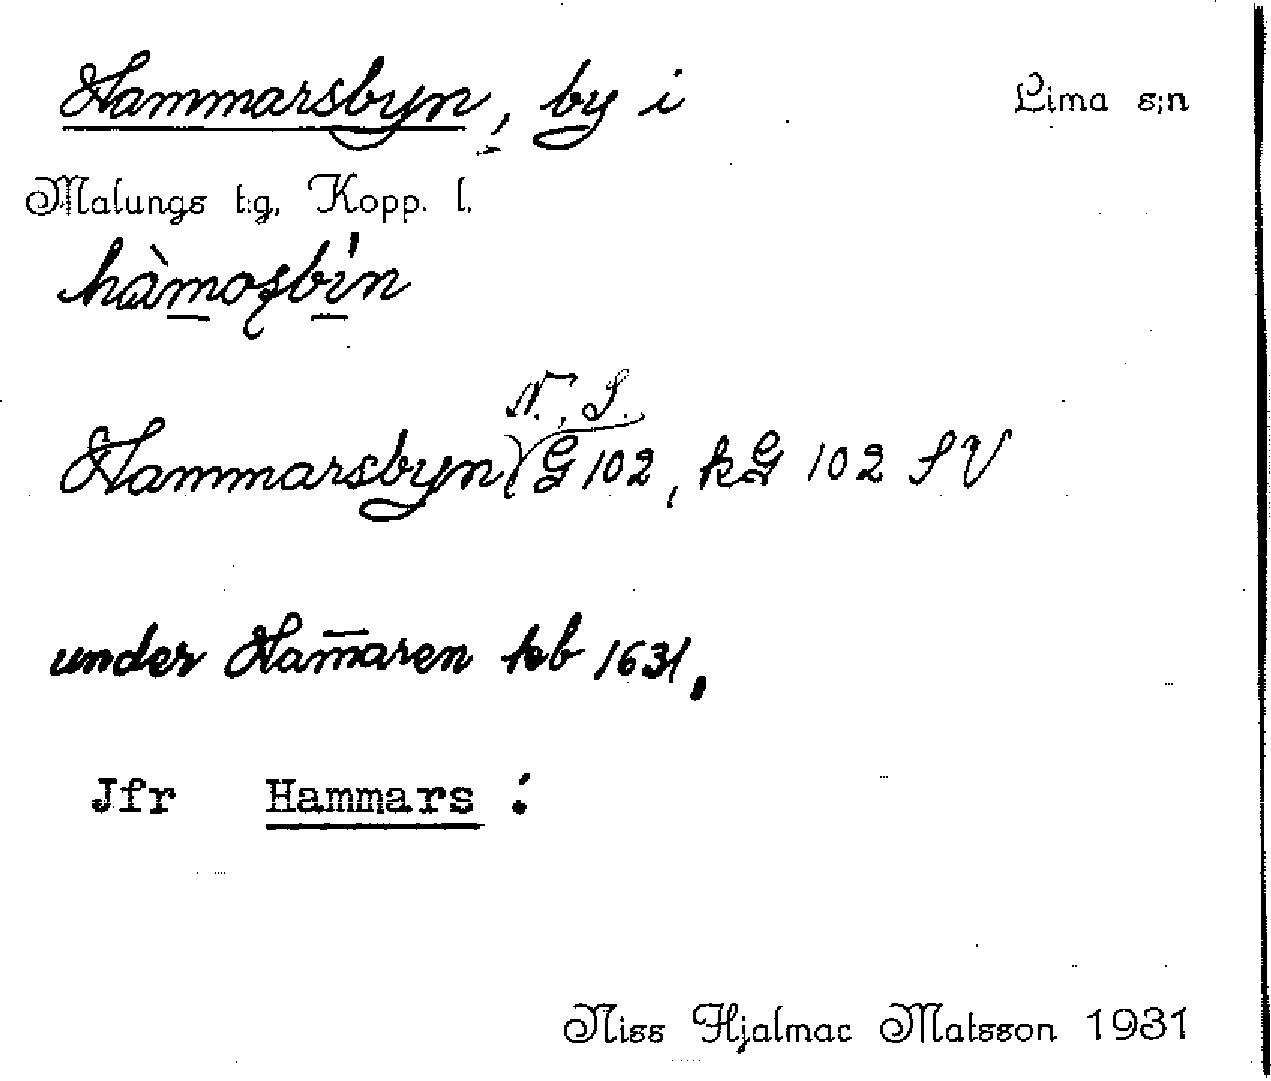 Hammarsbyn, by i Lima s:n
Malungs t:g, Kopp. l.
hàmoʂbín
N., S.
Hammarsbyn G 102, kG 102 SV
under Ham̅aren kb 1631.
Jfr Hammars :
Niss Hjalmar Matsson 1931